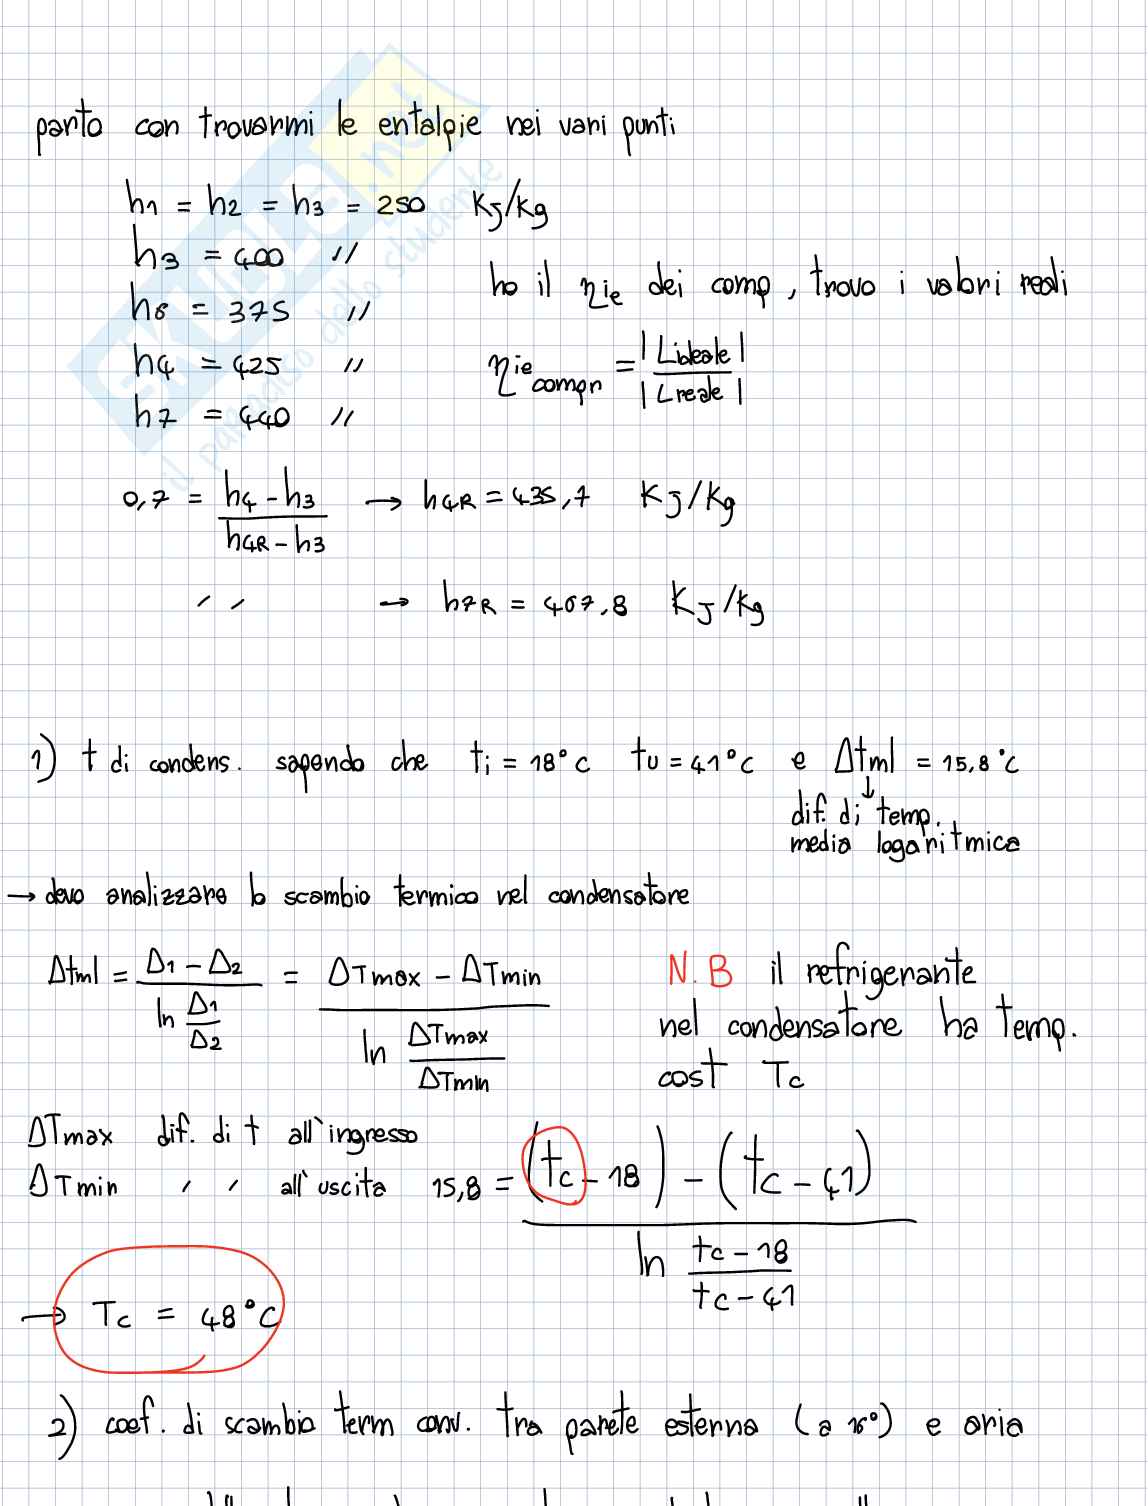 parto con trovarmi le entalpie nei vari punti
h1 = h2 = h3 = 250 KJ/kg
h3 = 400 //
h6 = 375 //
h4 = 425 //
h7 = 440 //
ho il ηie dei comp, trovo i valori reali
ηie compr = |Lideale| / |Lreale|
0,7 = h4 - h3 / h4R - h3 → h4R = 435,7 KJ/Kg
// → h7R = 467,8 KJ/Kg
1) t di condens. sapendo che ti = 18°C tu = 41°C e Δtml = 15,8°C
↓
dif. di temp.
media logaritmica
→ devo analizzare lo scambio termico nel condensatore
Δtml = Δ1 - Δ2 / ln Δ1/Δ2 = ΔTmax - ΔTmin / ln ΔTmax/ΔTmin
N.B il refrigerante
nel condensatore ha temp.
cost Tc
ΔTmax dif. di t all'ingresso
ΔTmin ' ' all'uscita
15,8 = (tc - 18) - (tc - 41) / ln tc - 18 / tc - 41
→ Tc = 48°C
2) coef. di scambio term conv. tra parete esterna (a 16°) e aria
SKUOLA.net
il paradiso dello studente